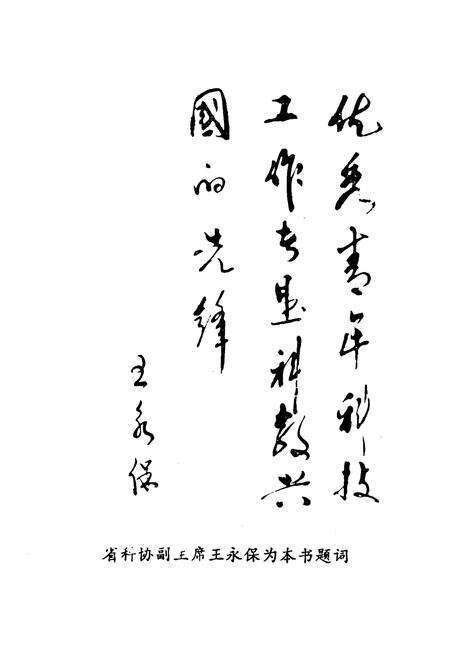 优秀青年科技
工作者是科教兴
國的先锋
王永保
省科协副主席王永保为本书题词